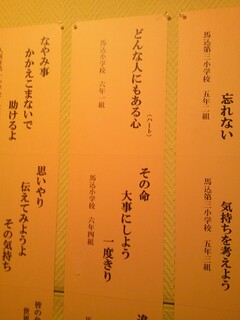 忘れない
馬込第二小学校 五年二組
気持ちを考えよう
馬込第三小学校 五年三組
どんな人にもある心
(ハート)
馬込小学校 六年一組
その命
大事にしよう
一度きり
馬込小学校 六年四組
なやみ事
かかえこまないで
助けるよ
思いやり
伝えてみようよ
その気持ち